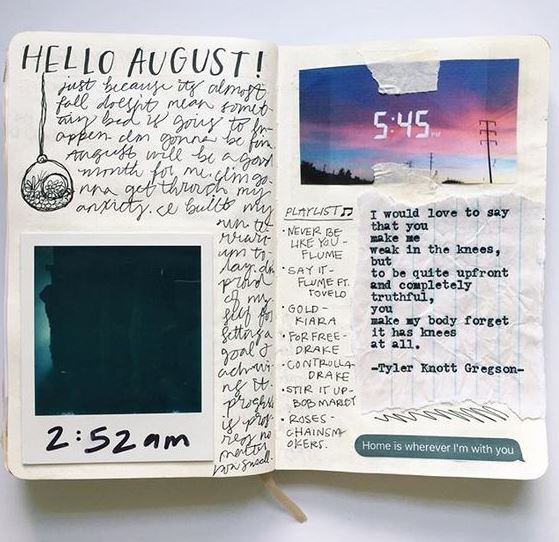 HELLO AUGUST!
just because its almost
fall doesnt mean somet-
hing bad is going to h-
appen. im gonna be fine
August will be a good
month for me. im go-
nna get through my
anxiety. i built my
own te-
rrari-
um to-
day. im
proud
of my
self for
setting a
goal &
achievi-
ng it.
progress
is prog-
ress no
matter
how small.
2:52am
5:45PM
PLAYLIST♫
• NEVER BE
LIKE YOU -
FLUME
• SAY IT -
FLUME FT.
TOVELO
• GOLD -
KIARA
• FOR FREE -
DRAKE
• CONTROLLA
DRAKE
• STIR IT UP -
BOB MARLEY
• ROSES -
CHAINSM
OKERS.
I would love to say
that you
make me
weak in the knees,
but
to be quite upfront
and completely
truthful,
you
make my body forget
it has knees
at all.
-Tyler Knott Gregson-
Home is wherever I'm with you